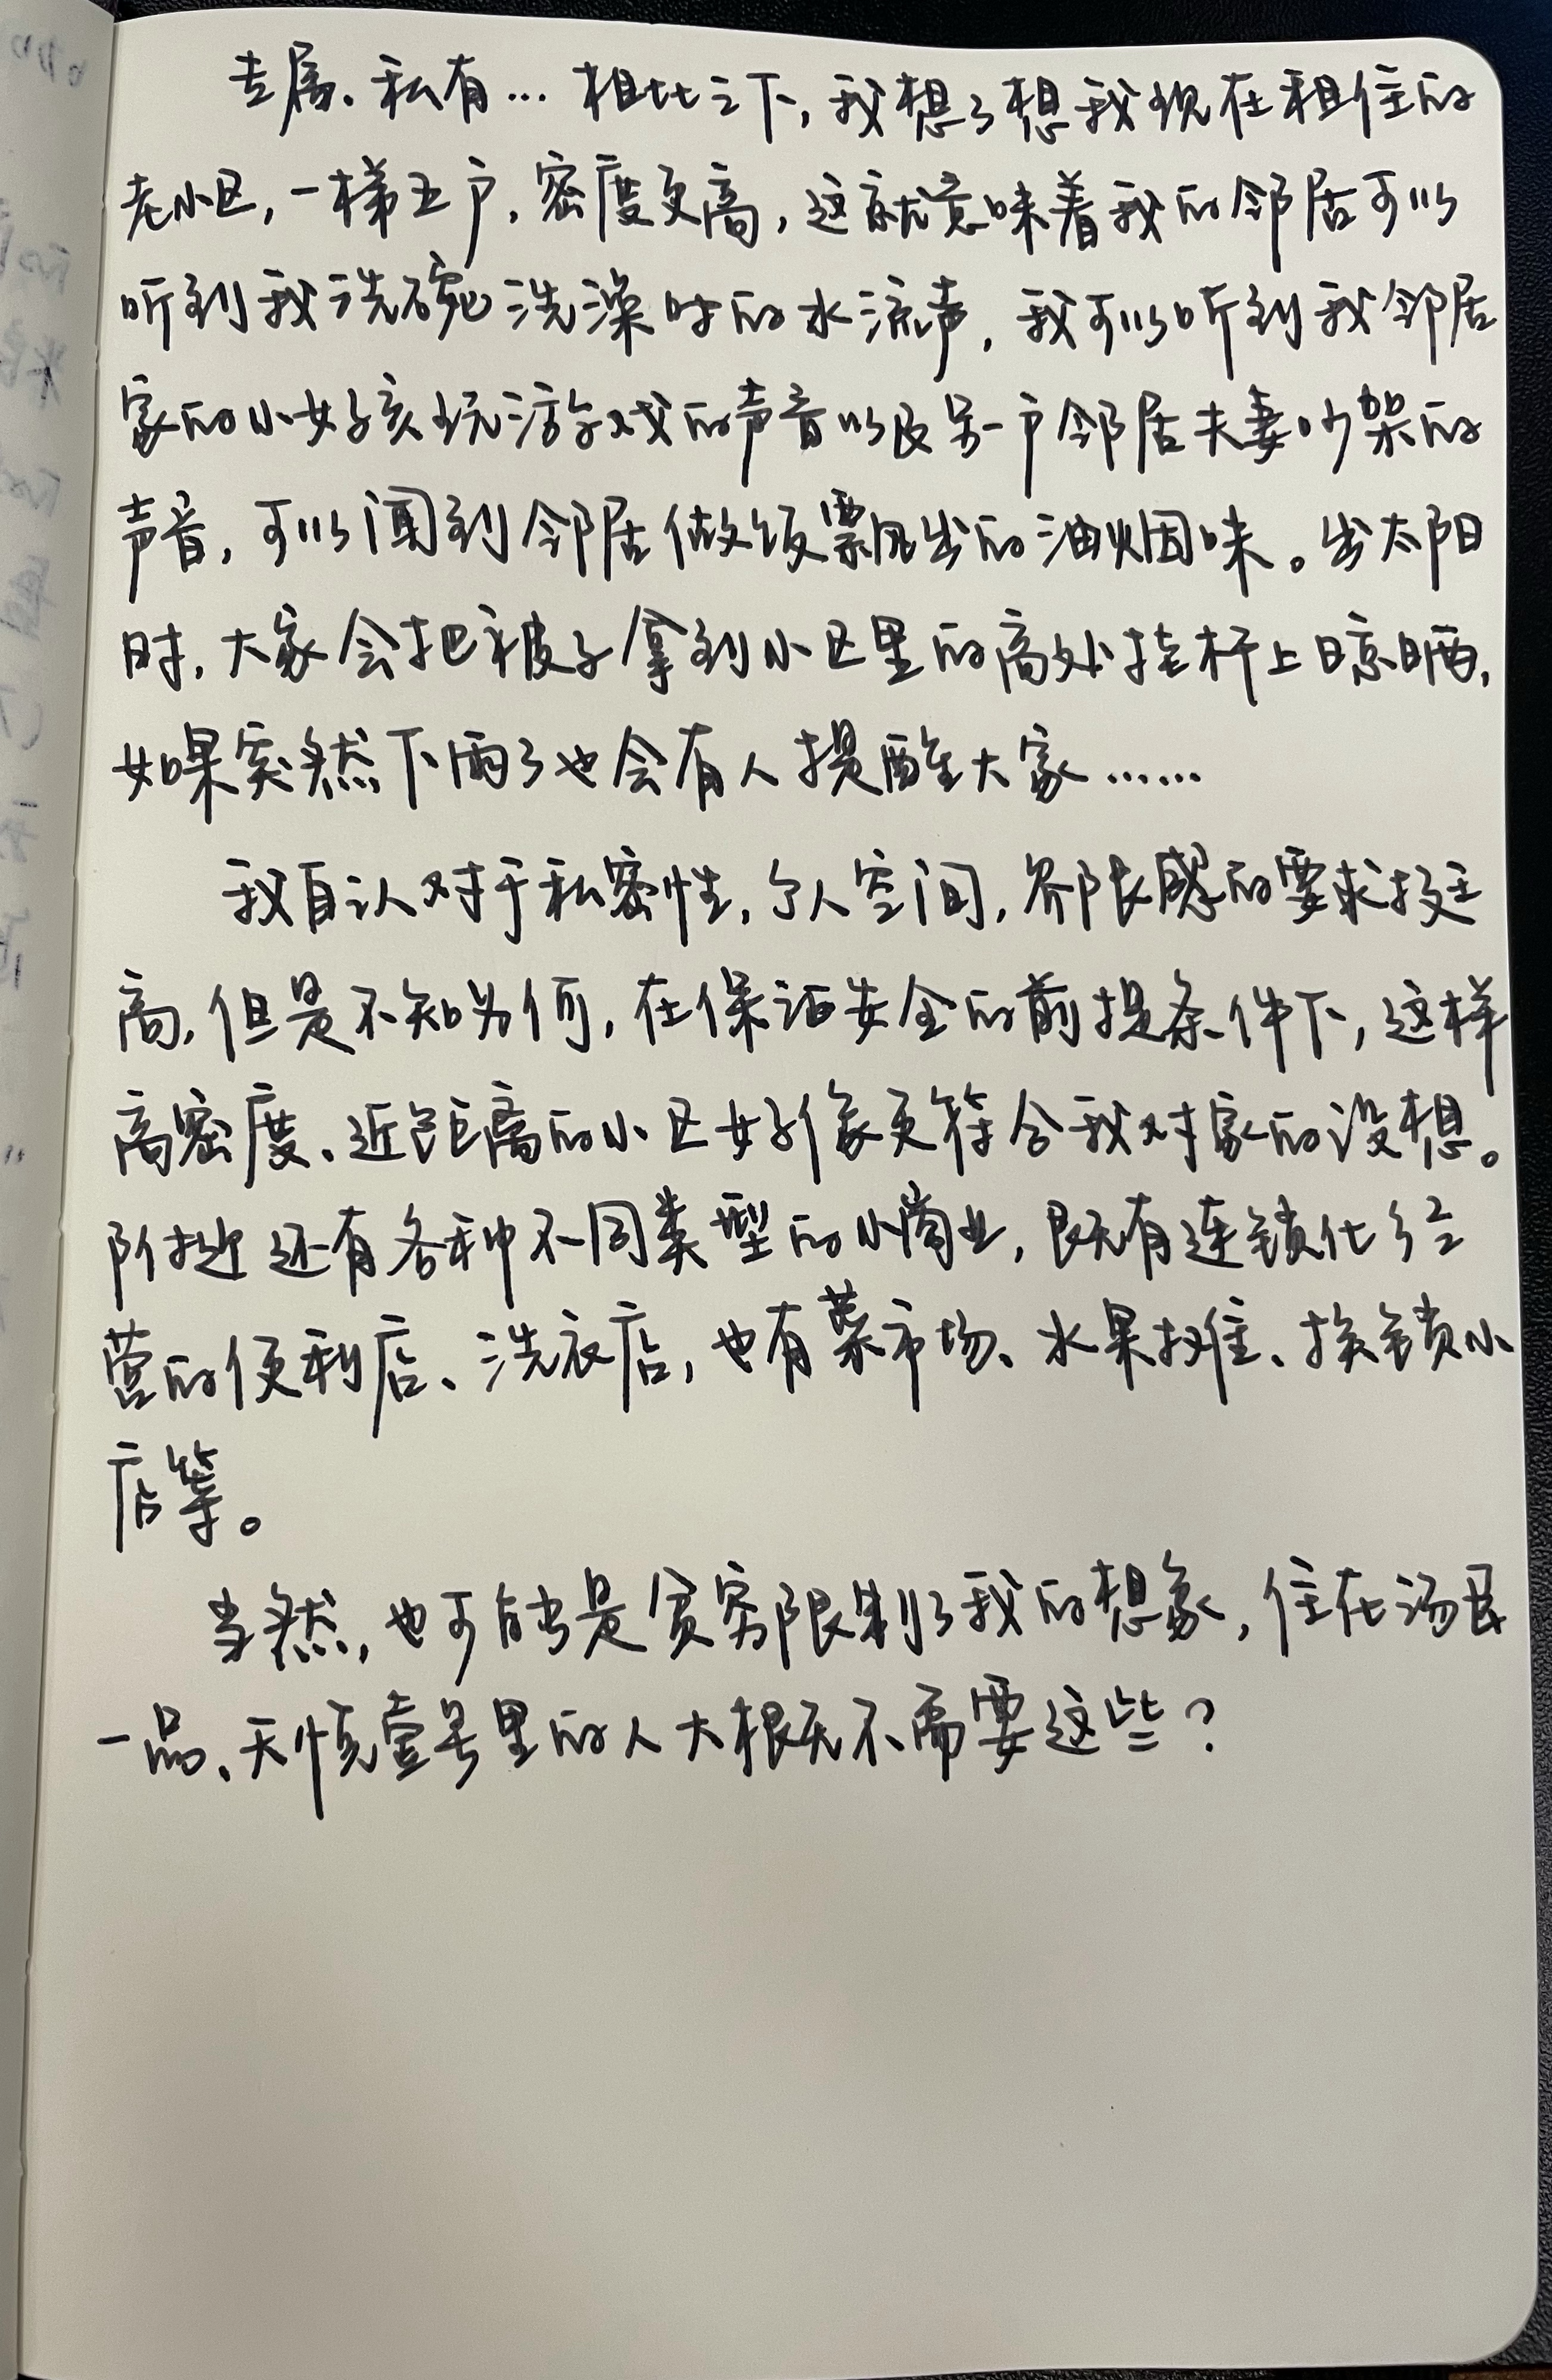 专属、私有… 相比之下,我想了想我现在租住的
老小区,一梯五户,密度更高,这就意味着我的邻居可以
听到我洗碗洗澡时的水流声,我可以听到我邻居
家的小女孩玩游戏的声音以及另一户邻居夫妻吵架的
声音,可以闻到邻居做饭飘出的油烟味。出太阳
时,大家会把被子拿到小区里的高处挂杆上晾晒,
如果突然下雨了也会有人提醒大家……
我自认对于私密性,个人空间,界限感的要求挺
高,但是不知为何,在保证安全的前提条件下,这样
高密度、近距离的小区好像更符合我对家的设想。
附近还有各种不同类型的小商业,既有连锁化经
营的便利店、洗衣店,也有菜市场、水果摊、换锁小
店等。
当然,也可能是贫穷限制了我的想象,住在汤臣
一品、天境壹号里的人大概不需要这些?